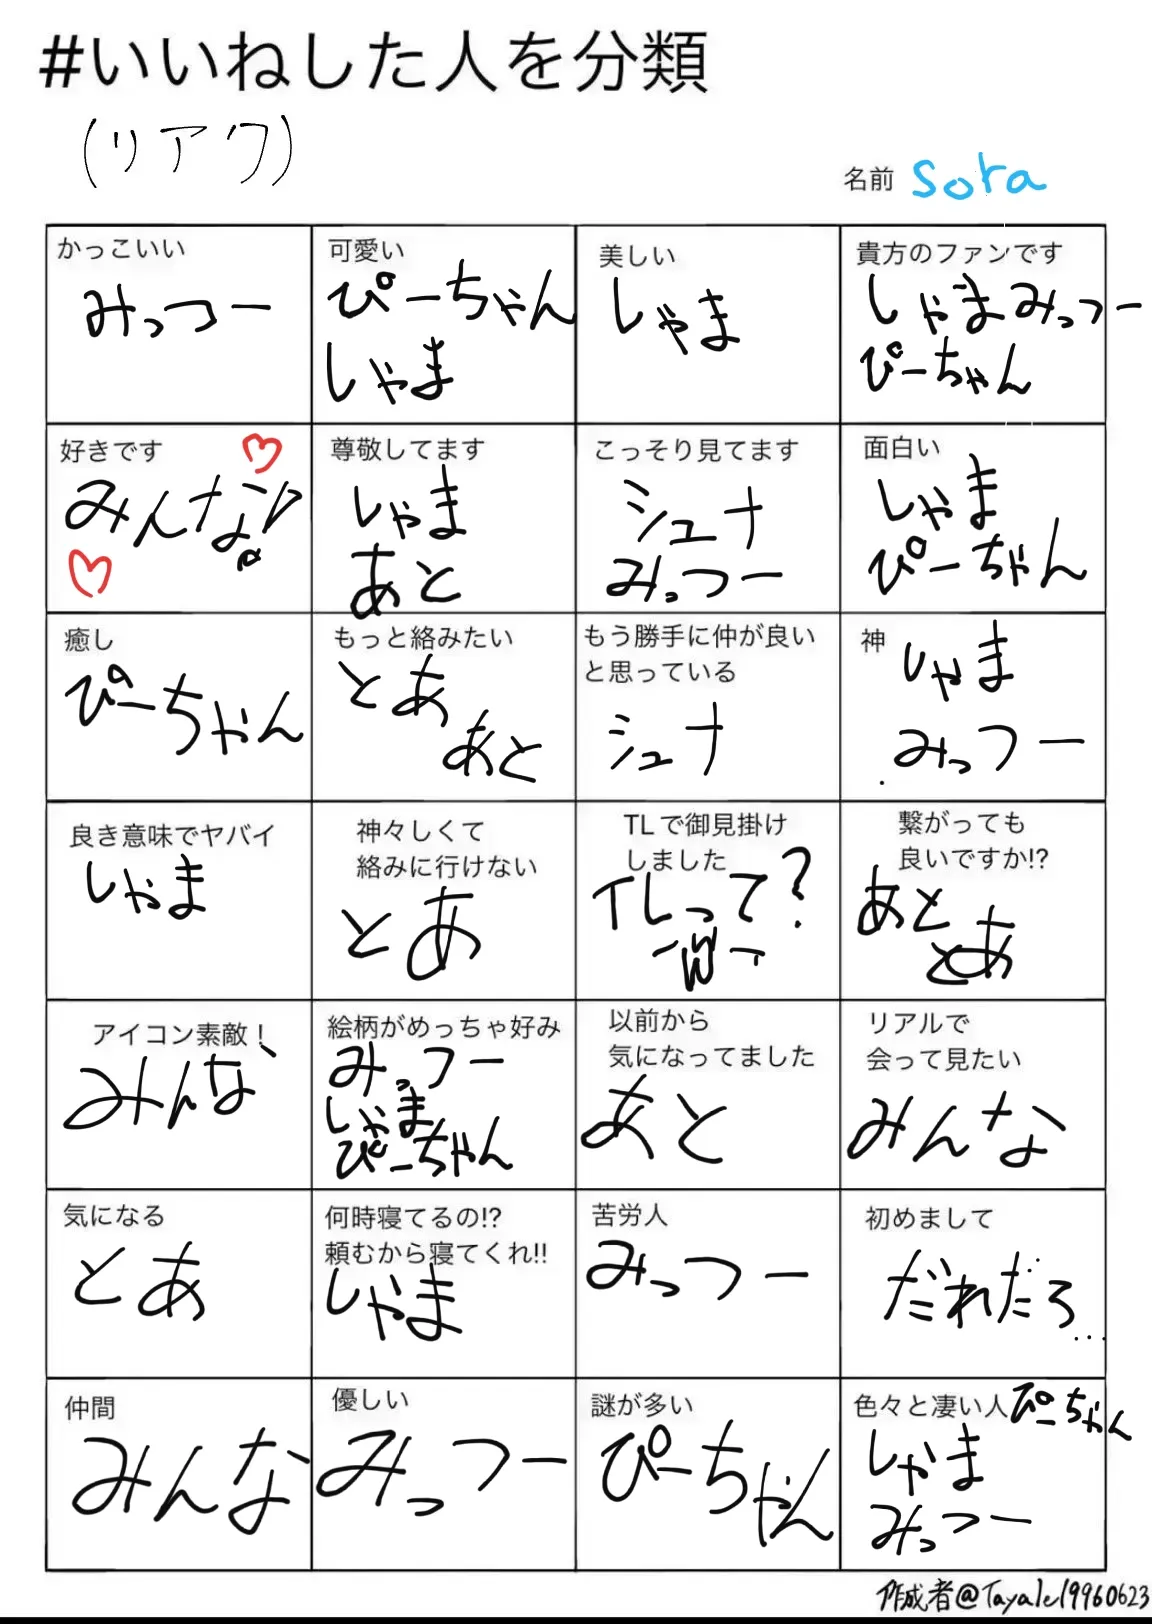 #いいねした人を分類
(リアク)
名前 sora
かっこいい
みっつー
可愛い
ぴーちゃん
しゃま
美しい
しゃま
貴方のファンです
しゃま みっつー
ぴーちゃん
好きです
みんな!
尊敬してます
しゃま
あと
こっそり見てます
シュナ
みっつー
面白い
しゃま
ぴーちゃん
癒し
ぴーちゃん
もっと絡みたい
とあ
あと
もう勝手に仲が良い
と思っている
シュナ
神
しゃま
みっつー
良き意味でヤバイ
しゃま
神々しくて
絡みに行けない
とあ
TLで御見掛け
しました
TLって?
繋がっても
良いですか!?
あと
とあ
アイコン素敵!
みんな
絵柄がめっちゃ好み
みっつー
しゃま
ぴーちゃん
以前から
気になってました
あと
リアルで
会って見たい
みんな
気になる
とあ
何時寝てるの!?
頼むから寝てくれ!!
しゃま
苦労人
みっつー
初めまして
だれだろ...
仲間
みんな
優しい
みっつー
謎が多い
ぴーちゃん
色々と凄い人 ぴーちゃん
しゃま
みっつー
作成者@Tayale19960623